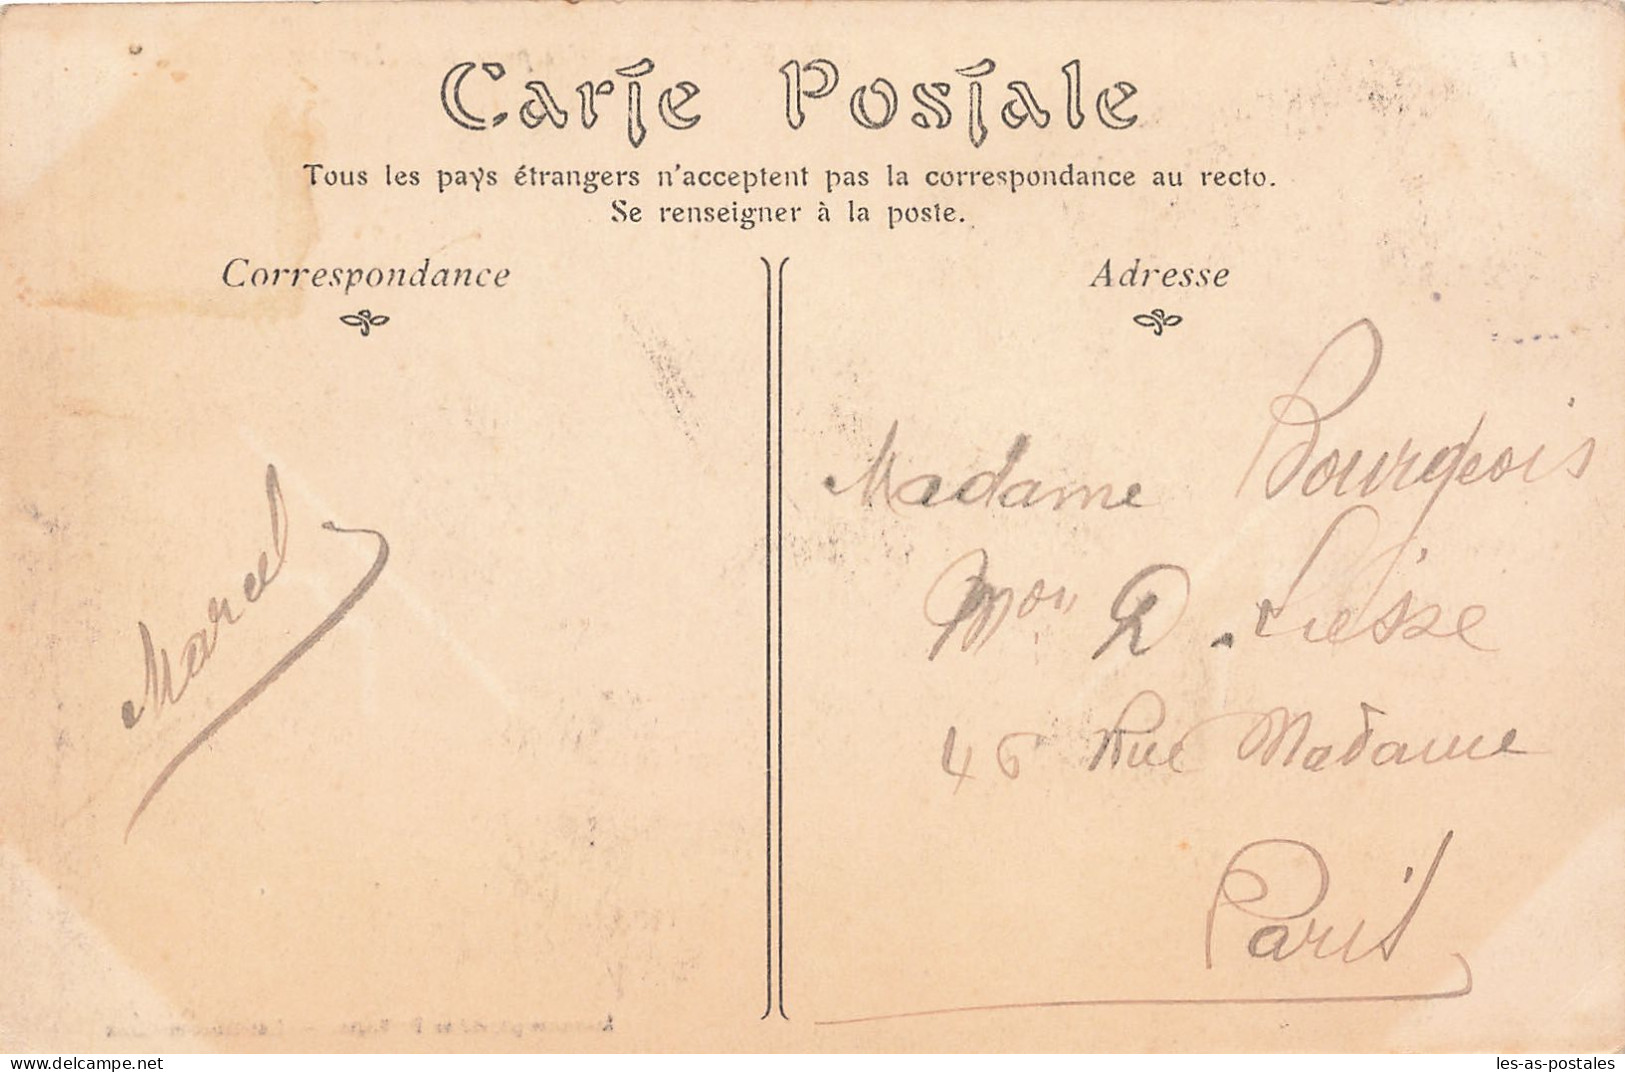 Carte Postale
Tous les pays étrangers n'acceptent pas la correspondance au recto.
Se renseigner à la poste.
Correspondance
Adresse
Marcel
Madame Bourgeois
Mon D. Liesse
46 Rue Madame
Paris
www.delcampe.net
les-as-postales